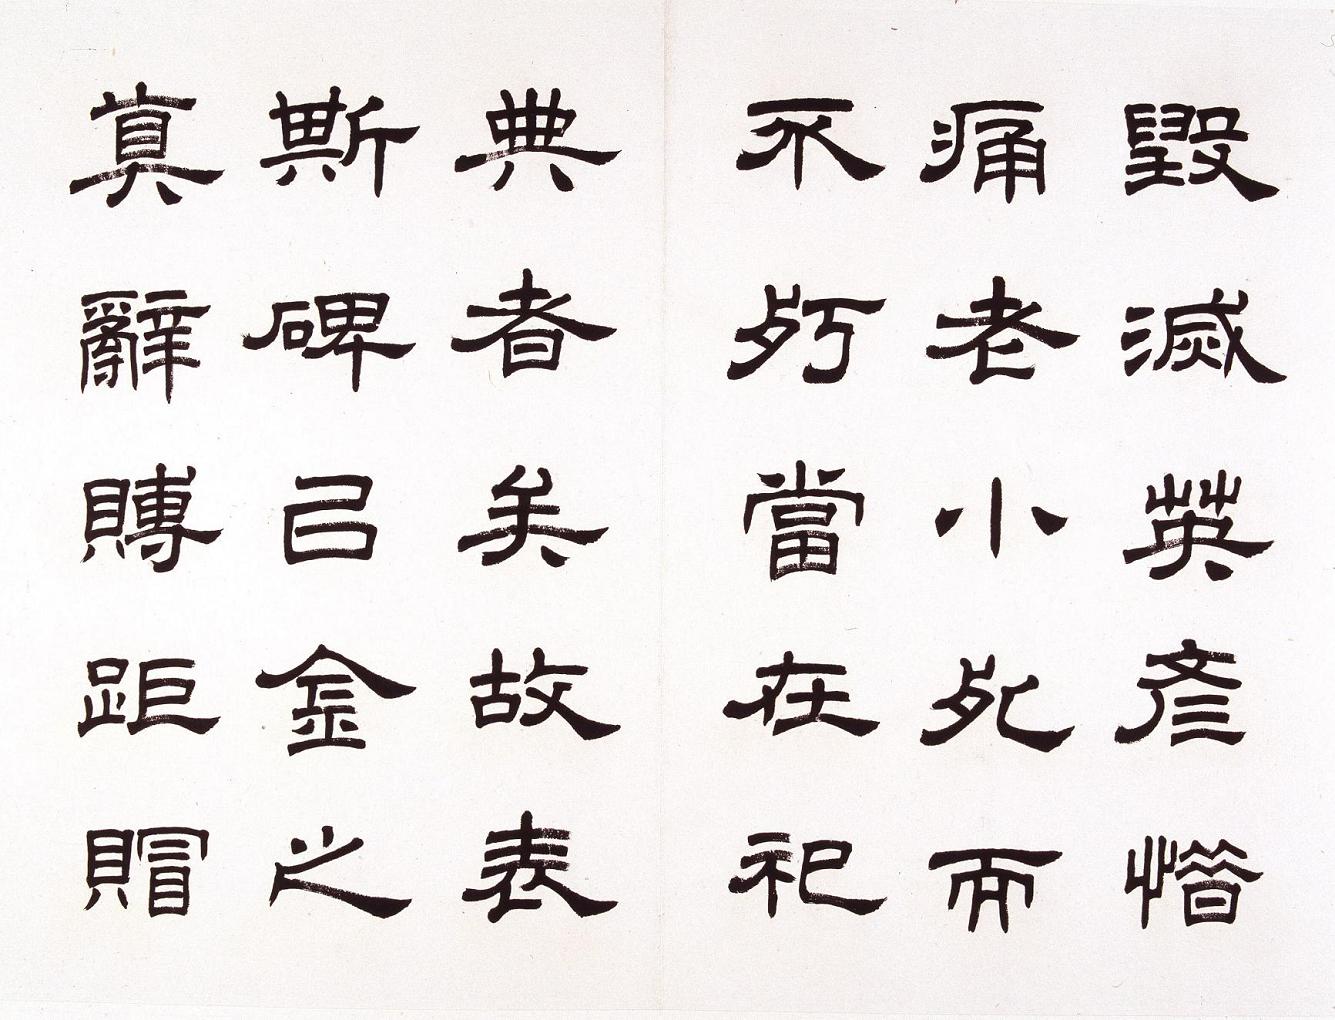 毀滅英彥惜
痛老小死而
不朽當在祀
典者矣故表
斯碑以金之
真辭賻距賵